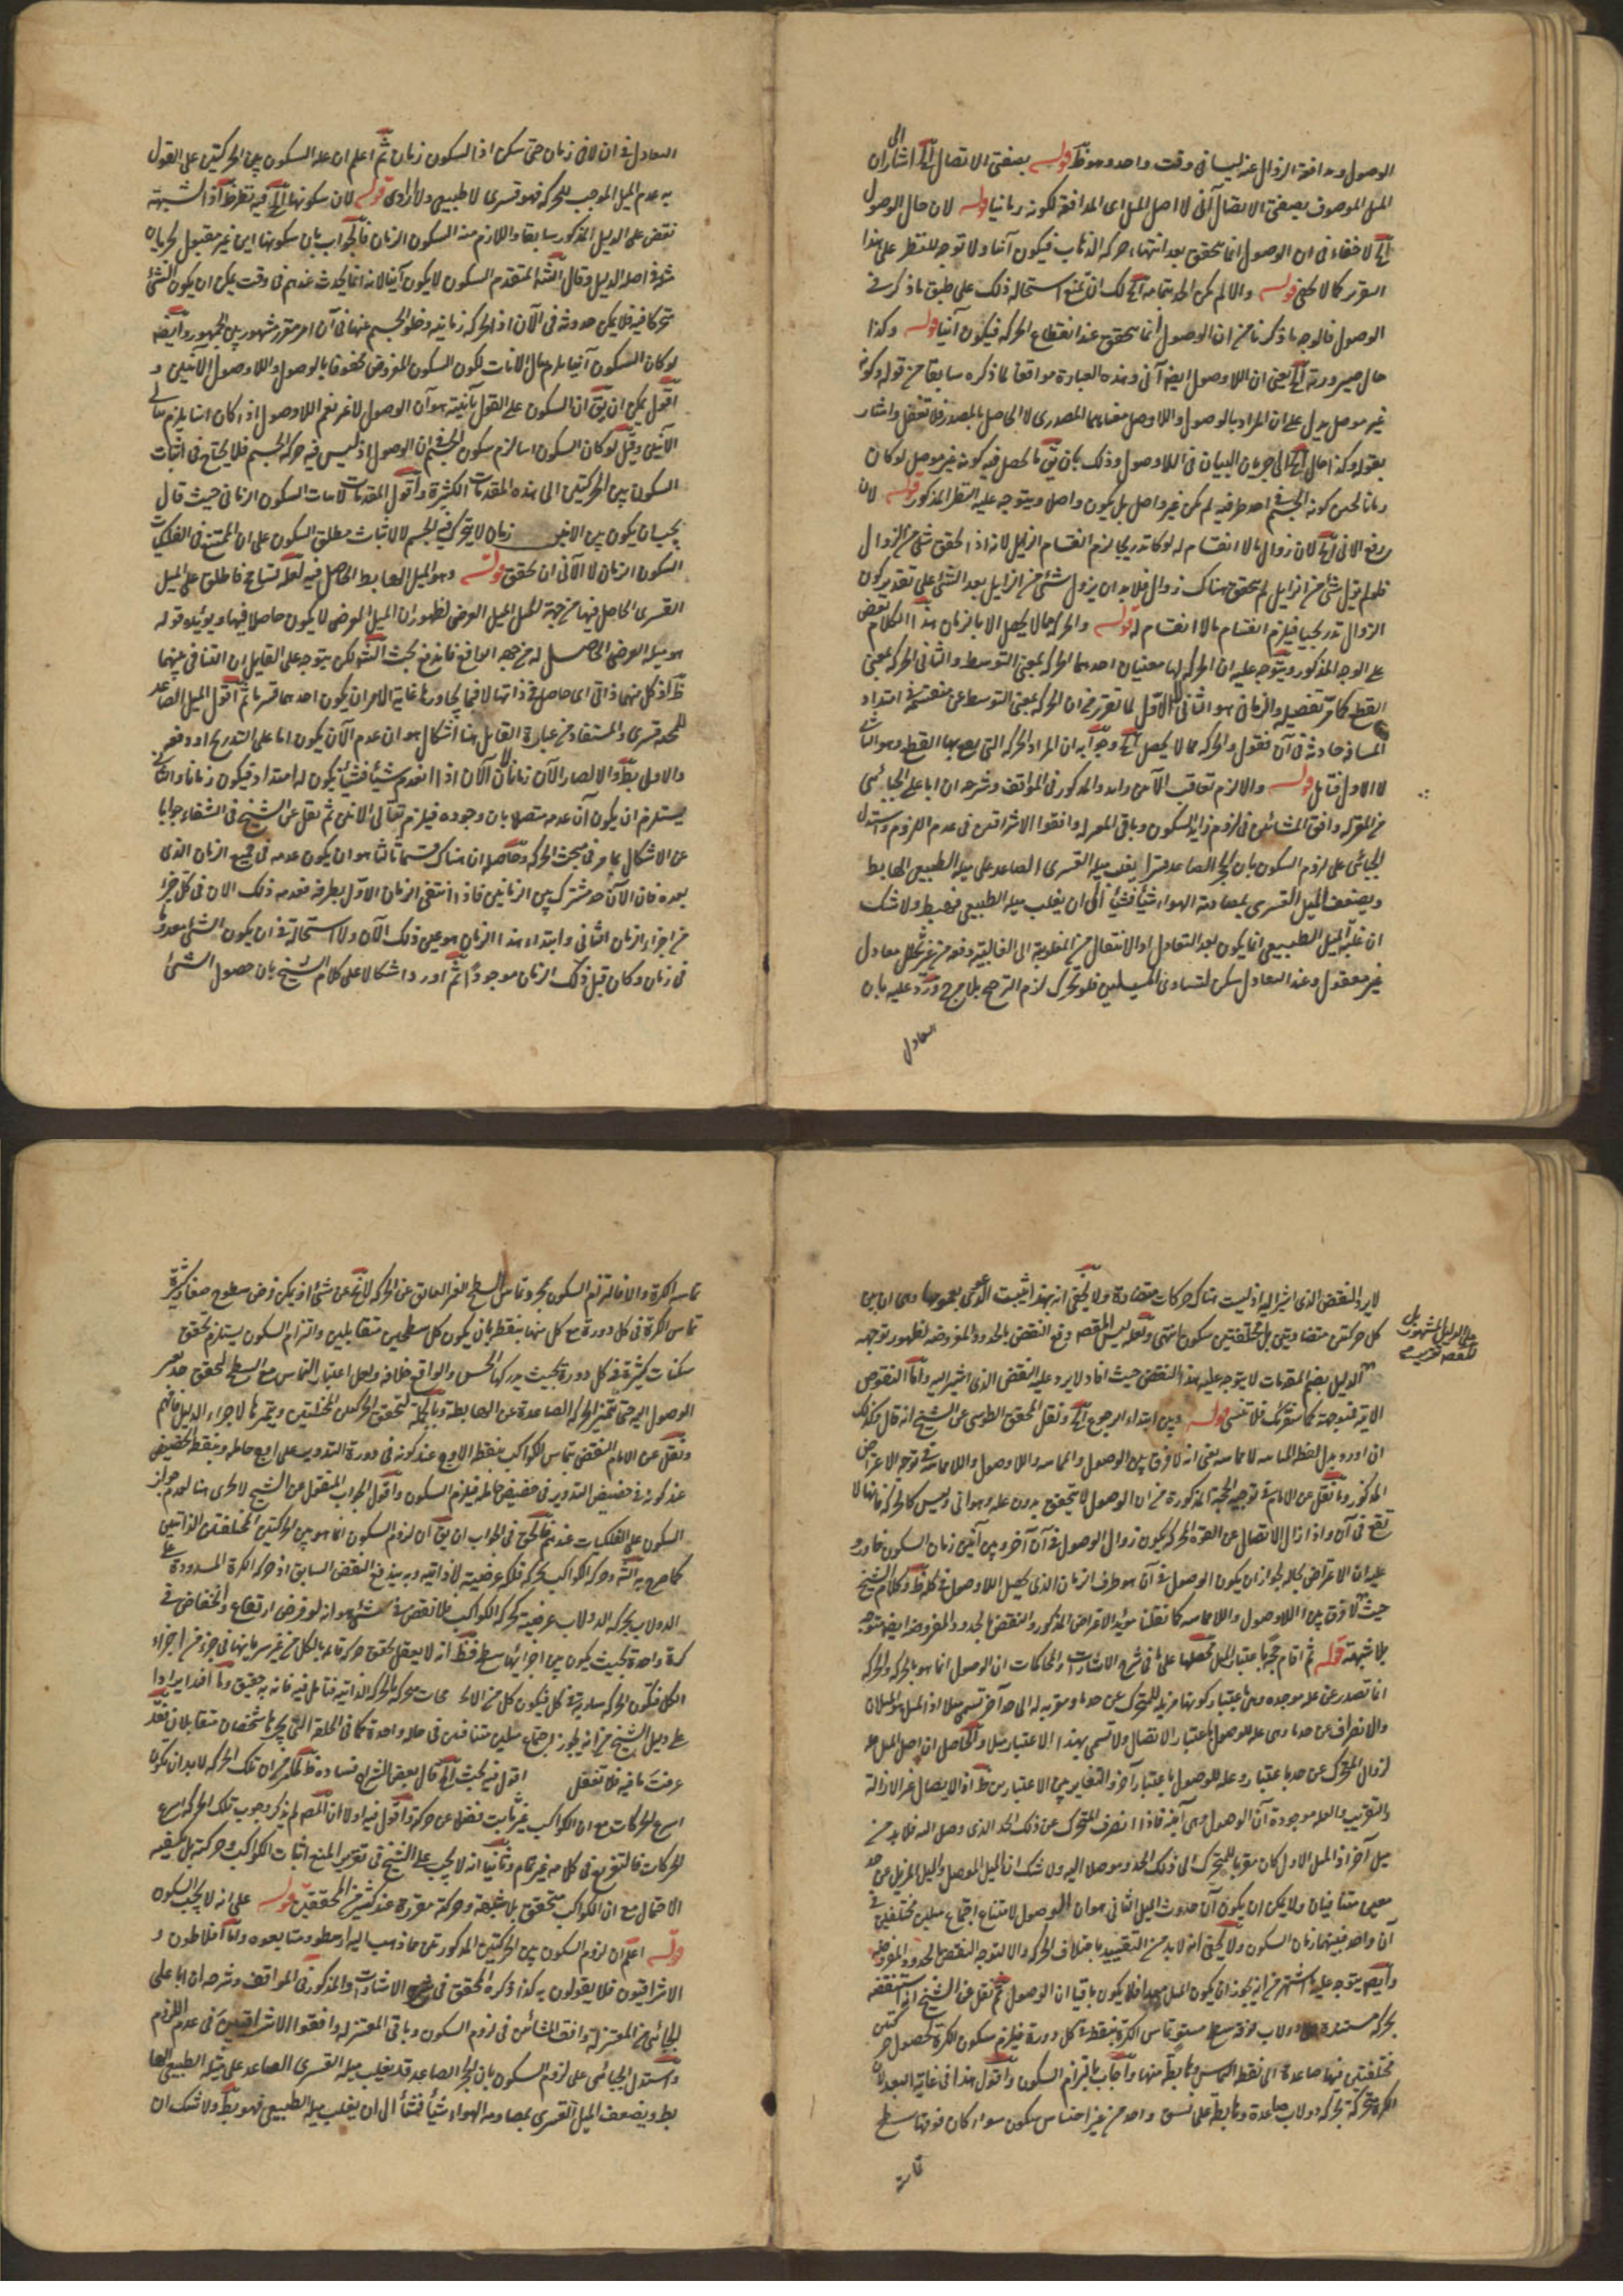 الوصول ومدافعة الزوال عنه ليسا فى وقت واحد وهو ظ قوله بصفتى الاتصال آه اشار الى ان
الميل الموصوف بصفتى الاتصال آنى لا اصل الميل اى المدافعة لكونه زمانيا قوله لان حال الوصول
آه لا خفاء فى ان الوصول انما يتحقق بعد انتهاء حركة الذهاب فيكون آنيا ولا توجه للنظر على هذا
التقرير كما لا يخفى قوله والا لم يكن الحد بتمامه آه لك ان تمنع استحالة ذلك على طبق ما ذكر فى
الوصول فالوجه ما ذكرنا من ان الوصول انما يتحقق عند انقطاع الحركة فيكون آنيا قوله وكذا
حال صيرورته آه يعنى ان اللاوصول ايضا آنى وهذه العبارة موافقا لما ذكره سابقا من قوله وكونه
غير موصل يدل على ان المراد بالوصول واللاوصول معناهما المصدرى لا الحاصل بالمصدر فلا تغفل واشار
بقوله وكذا حال آه الى جريان البيان فى اللاوصول وذلك بان يق ما يحصل فيه كونه غير موصل لو كان
زمانا لحين كونه الجسم فى احد طرفيه لم يكن غير واصل بل يكون واصلا ويتوجه عليه النظر المذكور قوله لان
رفع الآنى آه لان زوال ما لا انقسام له لو كان تدريجا لزم انقسام الزايل لانه اذا تحقق شئ من الزوال
فلو لم يزل شئ من الزايل لم يتحقق هناك زوال فلا بد ان يزول شئ من الزايل بعد الشئ على تقدير كون
الزوال تدريجيا فيلزم انقسام ما لا انقسام له قوله والحركة مما لا يحصل الا بالزمان هذا الكلام نقض
على الوجه المذكور ويتوجه عليه ان الحركة لها معنيان احدهما الحركة بمعنى التوسط والثانى الحركة بمعنى
القطع كما مر تفصيله والزمانى هو الثانى لا الاول لما تقرر من ان الحركة بمعنى التوسط غير منقسمة فى امتداد
المسافة حادثة فى آن فقول والحركة مما لا يحصل آه وجوابه ان المراد الحركة التى بمعنى القطع وهو الثانى
لا الاول فتامل قوله والا لزم تعاقب الآنين والمذكور فى المواقف وشرحه ان ابا على الجبائى
من المعتزلة وافق المشائين فى لزوم زمان السكون وباقى المعتزلة وافقوا الاشراقيين فى عدم اللزوم واستدل
الجبائى على لزوم السكون بان الحجر الصاعد قسرا يغلب ميله القسرى الصاعد على ميله الطبيعى الهابط
ويضعف الميل القسرى بمصادمة الهواء شيأ فشيأ الى ان يغلب ميله الطبيعى فيهبط ولا شك
ان غلبة الميل الطبيعى انما يكون بعد التعادل اذ الانتقال من المغلوبية الى الغالبية دفعة من غير تخلل معادل
غير معقول وعند التعادل سكن لتساوى الميلين فلو تحرك لزم الترجيح بلا مرجح ورد عليه بان
التعادل
التعادل فى ان لا فى زمان حتى سكن اذ السكون زمان ثم اعلم ان علة السكون بين الحركتين على القول
به عدم الميل الموجب للحركة فهو قسرى لا طبيعى ولا ارادى قوله لان سكونها آه فيه نظر ظ اذ الشبهة
نقض على الدليل المذكور سابقا واللازم منه السكون الزمانى فالجواب بان سكونها آنى غير مقبول لجريان
فى اصل الدليل وقال الش المتقدم السكون لا يكون آنيا لانه انما يحدث عندهم فى وقت يمكن ان يكون الشئ
متحركا فيه فلا يمكن حدوثه فى الآن اذ الحركة زمانية وخلو الجسم عنهما فى آن امر مقرر مشهور بين الجمهور وايضا
لو كان السكون آنيا يلزم تتالى الآنات لكون السكون المفروض محفوفا بالوصول واللاوصول الآنيين و
اقول يمكن ان يق ان السكون على القول بآنيته هو آن الوصول لا غير نعم اللاوصول اذا كان آنيا يلزم تتالى
الآنين وقيل لو كان السكون آنيا لزم سكون الجسم فى آن الوصول اذ ليس فيه حركة الجسم فلا يحتاج فى اثبات
السكون بين الحركتين الى هذه المقدمات الكثيرة واقول المقدمات لاثبات السكون الزمانى حيث قال
يجب ان يكون بين الآنين زمان لا يتحرك فيه الجسم لا لاثبات مطلق السكون على ان الممتنع فى الفلكيات
السكون الزمانى لا الآنى ان تحقق قوله وهو الميل الهابط الحاصل فيه لعله تسامح فاطلق على الميل
القسرى الحاصل فيها من جهة الجبل الميل العرضى لظهور ان الميل العرضى لا يكون حاصلا فيها ويؤيده قوله
هو ميله العرضى الحاصل له من جهة الدافع فاندفع بحث الش ولكن يتوجه على القايل ان التنافى بينهما
ظ اذ كل منهما ذاتى اى حاصل فى ذاتها لا فيما يجاورها غاية الامر ان يكون احدهما قسريا ثم اقول الميل الصاعد
للحبة قسرى والمستفاد من عبارة القايل هنا اشكال هو ان عدم الآن يكون اما على التدريج او دفعى
والاول بط والا لصار الآن زمانا لان الآن اذا انعدم شيأ فشيأ يكون له امتداد فيكون زمانا والثانى
يستلزم ان يكون آن عدمه متصلا بآن وجوده فيلزم تتالى الآنين ثم نقل عن الشيخ فى الشفاء جوابا
عن الاشكال بما مر فى مبحث الحركة وحاصله ان هناك قسما ثالثا هو ان يكون عدمه فى جميع الزمان الذى
بعده فان الآن حد مشترك بين الزمانين فاذا انتفى الزمان الاول بطرفه فعدمه ذلك الان فى كل جزء
من اجزاء الزمان الثانى وابتداء هذا الزمان هو عين ذلك الآن ولا استحالة فى ان يكون الشئ معدوما
فى زمان وكان قبل ذلك الزمان موجودا ثم اورد اشكالا على كلام الشيخ بان حصول الشئ
لا يرد النقض الذى اشير اليه اذ ليست هناك حركات متضادة ولا يخفى انه بهذا يثبت الدعوى بعمومها وهى ان بين
كل حركتين متضادتين بل مختلفتين سكون انتهى ولعله ليس المقصود دفع النقض بالحدود المفروضة لظهور توجهه
الدليل بضم المقدمات لا يتوجه عليه هذا النقض حيث افاد لا يرد عليه النقض الذى اشير اليه واما النقوض
الآتية فتوجهه كما ستعرفك فلا تنسى قوله وبين ابتداء الرجوع آه ونقل المحقق الطوسى عن الشيخ انه قال وكذلك
ان اورد بدل لفظ المماسة لا مماسة يعنى انه لا فرق بين الوصول والمماسة واللاوصول واللامماسة فى توجه الاعتراض
المذكور وما نقل عن الامام فى توجيه الحجة المذكورة من ان الوصول لا يتحقق بدون علة وهو آنى وليس كالحركة فانها لا
تقع فى آن واذا زال الاتصال عن القوة المحركة يكون زوال الوصول فى آن آخر وبين آنين زمان السكون فاورد
عليه ان الاعتراض بحاله لجواز ان يكون الوصول فى آن هو طرف الزمان الذى يحصل اللاوصول فى كله ظ وكلام الشيخ
حيث لا فرق بين اللاوصول واللامماسة كما نقلنا مؤيد الاعتراض المذكور والنقض بالحدود المفروضة ايضا متوجه
بلا شبهة قوله ثم اقام حجة باعتبار الميل محصلها على ما فى شرح الاشارات والمحاكمات ان الوصول انما هو بالحركة والحركة
انما تصدر عن علة موجدة وهى باعتبار كونها مزيلة للمتحرك عن حد ما ومقربة له الى حد آخر تسمى ميلا اذ الميل هو الميلان
والانصراف عن حد ما وهى علة للوصول باعتبار الاتصال ولا تسمى بهذا الاعتبار ميلا والحاصل ان اصل الميل علة
لزوال المتحرك عن حد باعتبار وعلة للوصول باعتبار آخر والتغاير بين الاعتبارين ظ اذ الايصال غير الازالة
والتقريب والعلة موجودة آن الوصول وهى آنية فاذا انصرف المتحرك عن ذلك الحد الذى وصل اليه فلا بد من
ميل آخر اذ الميل الاول كان مقربا للمتحرك الى ذلك الحد وموصلا اليه ولا شك ان الميل الموصل والميل المزيل عن حد
معين متنافيان ولا يمكن ان يكون آن حدوث الميل الثانى هو آن الوصول لامتناع اجتماع ميلين مختلفين فى
آن واحد فبينهما زمان السكون ولا يخفى انه لا بد من التقييد باختلاف الحركة والا لتوجه النقض بالحدود المفروضة
وايضا يتوجه عليه ما اشتهر من انه يجوز ان يكون الميل معدا فلا يكون باقيا آن الوصول ثم نقل عن الشيخ انه استنقضه
بحركة مستديرة دولاب فوقه سطح مستو تماس الكرة بنقطة فى كل دورة فيلزم سكون الكرة لحصول حركتين
مختلفتين فيها صاعدة الى نقطة التماس وهابطة منها واجاب بالتزام السكون واقول هذا فى غاية البعد لان
الكرة متحركة بحركة دولاب صاعدة وهابطة على نسق واحد من غير احساس سكون سواء كان فوقها سطح
على الدليل المشهور بل
المقصود
تماسه الكرة والا فالتزام السكون بمجرد تماس السطح الغير العايق عن الحركة لا يخ عن شئ اذ يمكن فرض سطوح صغار كثيرة
تماس الكرة فى كل دورة مع كل منها بنقطة بان يكون كل سطحين متقابلين والتزام السكون يستلزم تحقق
سكنات كثيرة فى كل دورة بحيث يدركها الحس والواقع خلافه ولعل اعتبار التماس مع السطح لتحقق حد يعتبر
الوصول اليه حتما تتميز الحركة الصاعدة عن الهابطة وبالجملة لتحقق الحركتين المختلفتين وتميزها لاجراء الدليل فافهم
ونقل عن الامام النقض بتماس الكواكب بنقطة الاوج عند كونه فى دورة التدوير على اوج حامله وبنقطة الحضيض
عند كونه فى حضيض التدوير فى حضيض حامله فيلزم السكون واقول الجواب المنقول عن الشيخ لا يجرى هنا لعدم جواز
السكون على الفلكيات عندهم فالحق فى الجواب ان يق ان لزوم السكون انما هو بين الحركتين المختلفتين الذاتيتين
كما صرح به الش وحركة الكواكب بحركة فلكه عرضية لا ذاتية وبه يندفع النقض السابق اذ حركة الكرة المسدودة على
الدولاب بحركة الدولاب عرضية كحركة الكواكب فلا نقض فى شئ هو انه لو فرض ارتفاع وانخفاض فى
كرة واحدة بحيث يكون بين اجزائها سطح فظ انه لا يعقل تحقق حركة قائمة بالكل من غير سريانها فى جزء من اجزاء
الكل فتكون الحركة سارية فى كل فيكون كل من الاجزاء متحركة بالحركة الذاتية فتامل فيه فانه به حقيق وما افاد ايرادا
على دليل الشيخ من انه يجوز اجتماع ميلين متنافيين فى حالة واحدة كما فى الحلقة التى يجرها شخصان متقابلان فقد
عرفت ما فيه فلا تغفل اقول فيه بحث آه قال بعض الشراح فساده ظ لمنعه من ان تلك الحركة لا بد ان تكون
اسرع الحركات مع ان الكواكب غير ثابت فضلا عن حركته واقول فيه اولا ان المص لم يذكر وجوب تلك الحركة اسرع
الحركات فالتفريع فى كلامه غير تمام وثانيا انه لا يجب على الشيخ فى تقرير المنع اثبات الكواكب وحركته بل يكفيه
الاحتمال مع ان الكواكب متحقق بلا شبهة وحركة مقررة عند كثير من المحققين قوله على انه لا يجب السكون
قوله اعلم ان لزوم السكون بين الحركتين المذكورتين مما ذهب اليه ارسطو ومتابعوه واما افلاطون و
الاشراقيون فلا يقولون به كذا ذكره المحقق فى شرح الاشارات والمذكور فى المواقف وشرحه ان ابا على
الجبائى من المعتزلة وافق المشائين فى لزوم السكون وباقى المعتزلة وافقوا الاشراقيين فى عدم اللزوم
واستدل الجبائى على لزوم السكون بان الحجر الصاعد قد يغلب ميله القسرى الصاعد على ميله الطبيعى الها
بط ويضعف الميل القسرى بمصادمة الهواء شيأ فشيأ الى ان يغلب ميله الطبيعى فهو بط ولا شك ان
تماسه